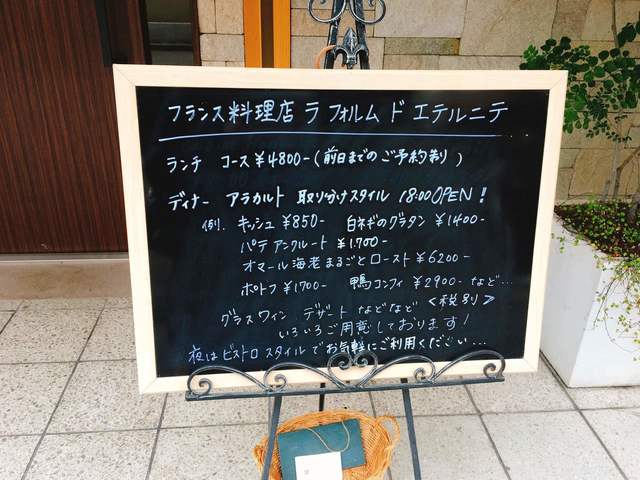 フランス料理店 ラ フォルム ド エテルニテ
ランチ コース ¥4800-(前日までのご予約制)
ディナー アラカルト 取り分けスタイル 18:00 OPEN!
例. キッシュ ¥850- 白ネギのグラタン ¥1400-
パテアンクルート ¥1.700-
オマール海老まるごとロースト ¥6200-
ポトフ ¥1700- 鴨コンフィ ¥2900- など…
グラスワイン デザート などなど <税別>
いろいろご用意しております!
夜は ビストロ スタイルで お気軽にご利用ください…